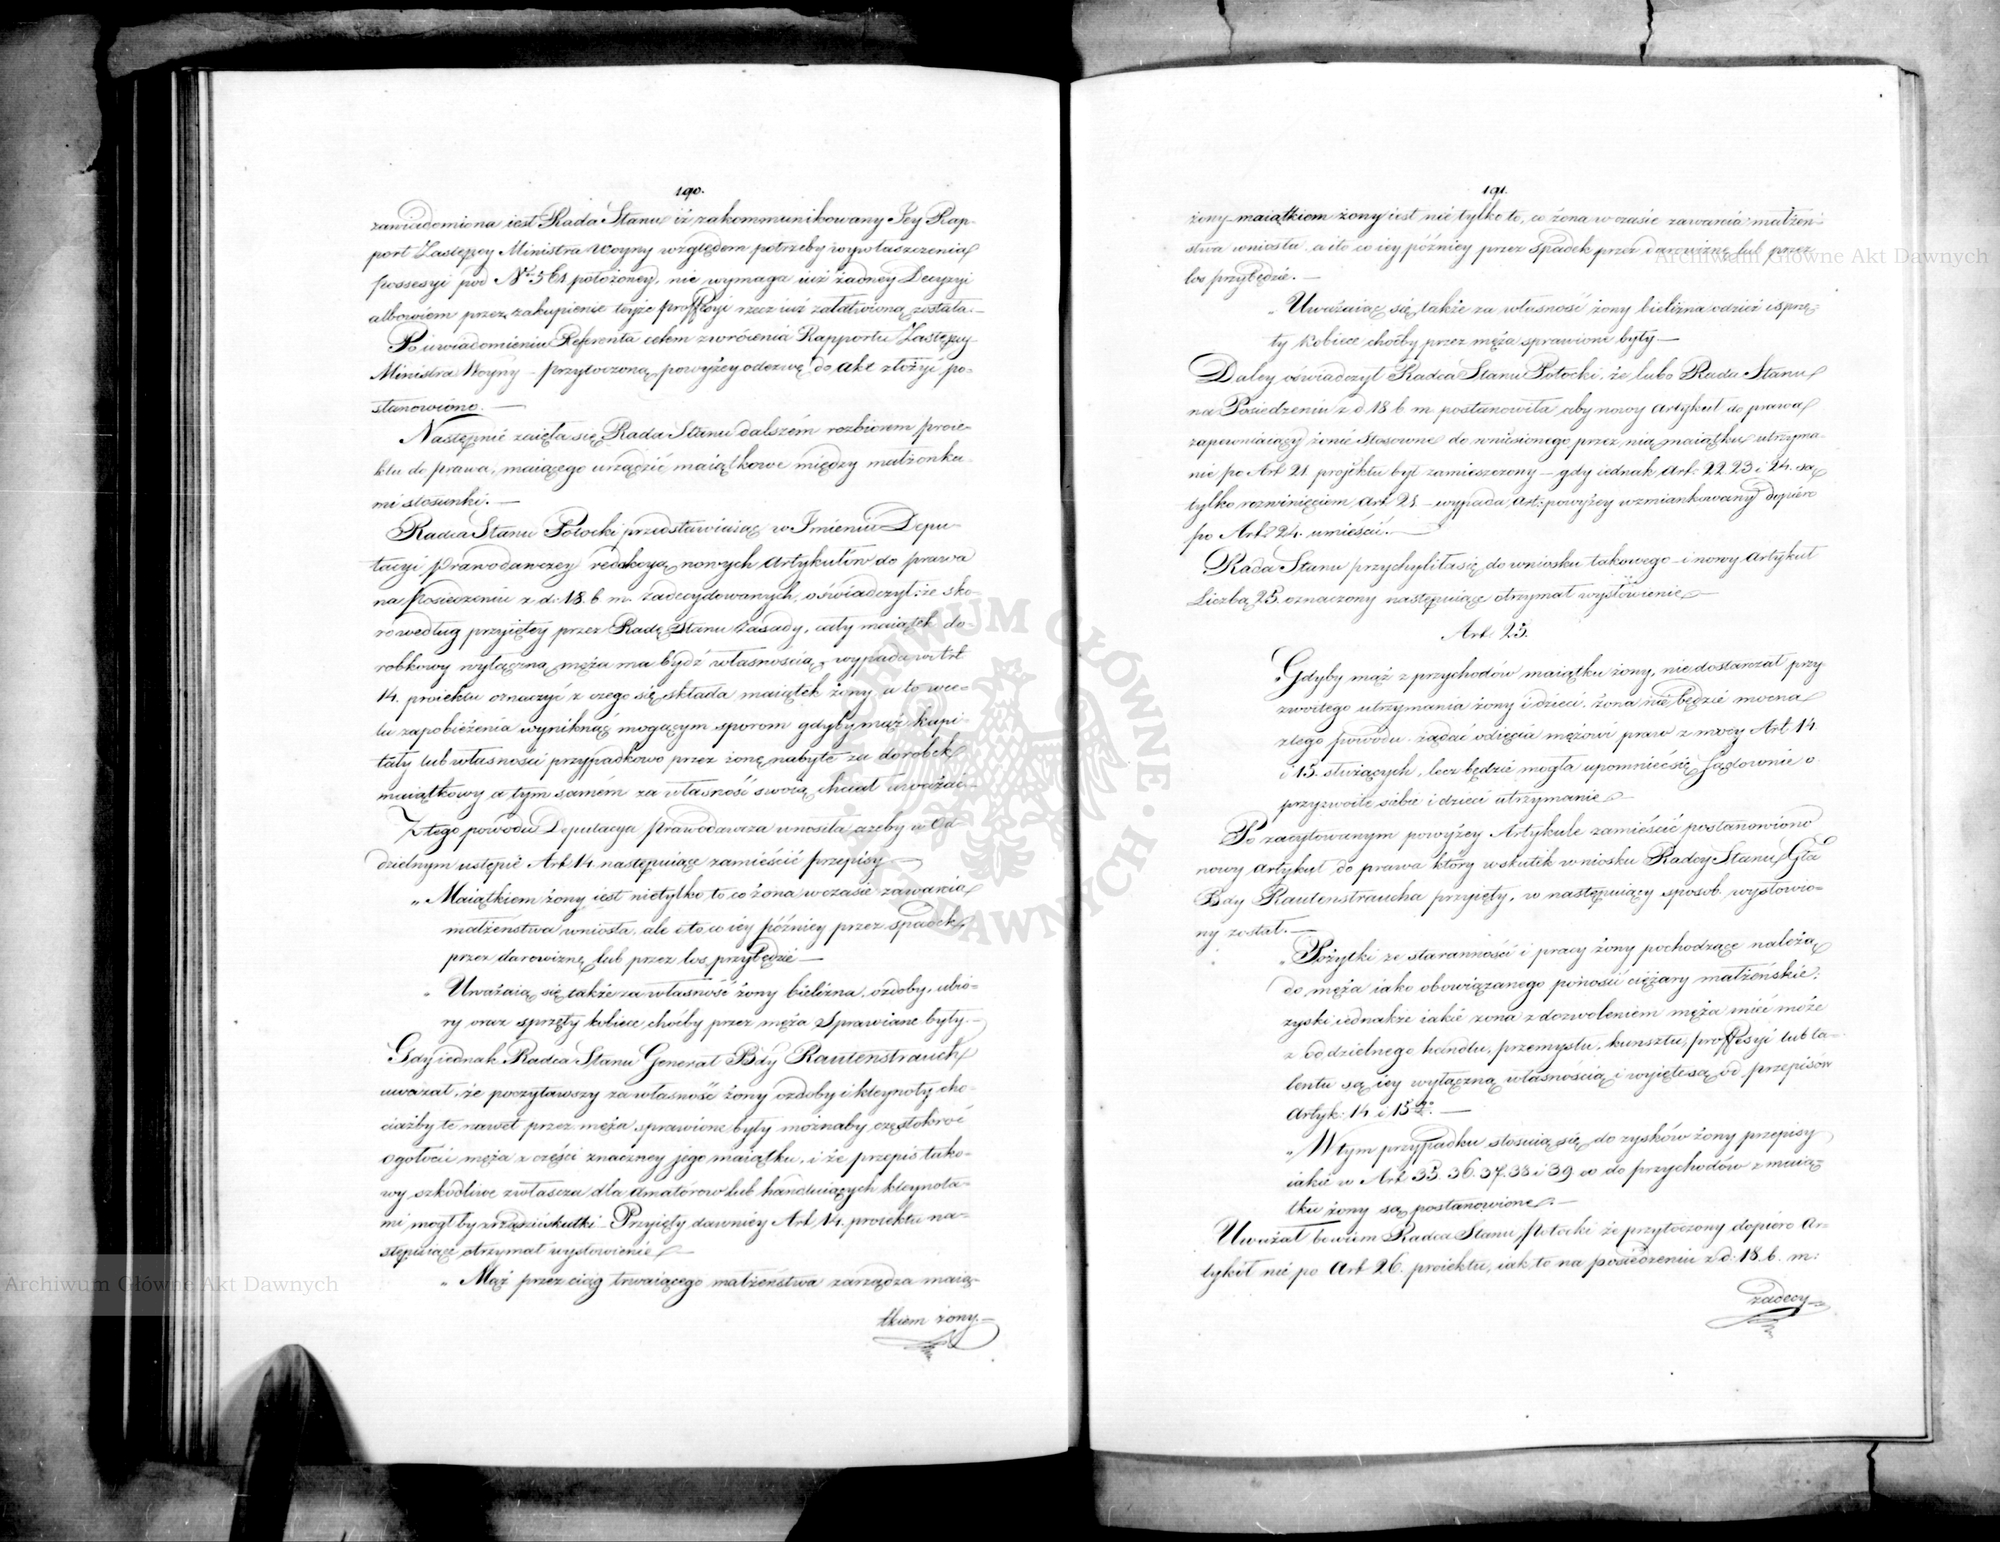 190.
zawiadomiona iest Rada Stanu iż zakommunikowany Jey Rap-
port Zastępcy Ministra Woyny względem potrzeby wywłaszczenia
possesyi pod Nr 561 położoney, nie wymaga iuż żadney Decyzyi
albowiem przez zakupienie teyże proffesyi rzecz iuż załatwioną została.—
Po uwiadomieniu Referenta celem zwrócenia Rapportu Zastępcy
Ministra Woyny — przytoczoną powyżey odezwę do akt złożyć po-
stanowiono.—
Następnie zaięła się Rada Stanu dalszém rozbiorem proie-
ktu do prawa, maiącego urządzić maiątkowe między małżonka-
mi stosunki.—
Radca Stanu Potocki przedstawiaiąc w Imieniu Depu-
tacyi Prawodawczey redakcyą nowych Artykułów do prawa
na posiedzeniu z d. 18. b. m. zadecydowanych, oświadczył: że sko-
ro według przyiętey przez Radę Stanu zasady, cały maiątek do-
robkowy wyłączną męża ma bydź własnością, wypada w Art
14. proiektu oznaczyć z czego się składa maiątek żony a to w ce-
lu zapobieżenia wyniknąć mogącym sporom gdyby mąż kapi-
tały lub własności przypadkowo przez żonę nabyte za dorobek
maiątkowy a tym samém za własność swoią chciał uważać.—
Z tego powodu Deputacya Prawodawcza wnosiła ażeby w Od
dzielnym ustępie Art 14. następuiące zamieścić przepisy—
„ Maiątkiem żony iest nietylko to co żona w czasie zawarcia
małżeństwa wniosła, ale i to co iey późniey przez spadek,
przez darowiznę lub przez los przybędzie—
„ Uważaią się także za własność żony bielizna, ozdoby, ubio-
ry oraz sprzęty kobiece choćby przez męża sprawiane były.—
Gdy iednak Radca Stanu Generał Bdy Rautenstrauch
uważał, że poczytawszy za własność żony ozdoby i kleynoty cho-
ciażby te nawet przez męża sprawione były możnaby częstokroć
ogołocić męża z części znaczney jego maiątku, i że przepis tako-
wy szkodliwe zwłaszcza dla amatorów lub handluiących kleynota-
mi mogłby zrządzić skutki — Przyięty dawniey Art 14. proiektu na-
stępuiące otrzymał wysłowienie—
„ Mąż przez ciąg trwaiącego małżeństwa zarządza maią-
tkiem żony.—
191.
żony maiątkiem żony iest nie tylko to, co żona w czasie zawarcia małżeń-
stwa wniosła, a i to co iey późniey przez spadek przez darowiznę lub przez
los przybędzie.—
„ Uważaią się także za własność żony bielizna odzież i sprzę-
ty kobiece choćby przez męża sprawione były—
Daley oświadczył Radca Stanu Potocki, że lubo Rada Stanu
na Posiedzeniu z d 18 b m postanowiła aby nowy Artykuł do prawa
zapewniaiący żonie stosowne do wniesionego przez nią maiątku utrzyma-
nie po Art 21 projektu był zamieszczony — gdy iednak Art: 22 23 i 24. są
tylko rozwinięciem Art 21 — wypada Art: powyżey wzmiankowany dopiero
po Art 24. umieścić.—
Rada Stanu przychyliła się do wniosku takowego — i nowy Artykuł
Liczbą 25. oznaczony następuiące otrzymał wysłowienie—
Art 25.
„Gdyby mąż z przychodów maiątku żony, nie dostarczał przy-
zwoitego utrzymania żony i dzieci, żona nie będzie mocna
z tego powodu żądać odięcia mężowi praw z mocy Art 14.
i 15. służących, lecz będzie mogła upomnieć się sądownie o
przyzwoite siebie i dzieci utrzymanie—
Po zacytowanym powyżey Artykule zamieścić postanowiono
nowy artykuł do prawa który wskutek wniosku Radcy Stanu Gła
Bdy Rautenstraucha przyięty, w następuiący sposob wysłowio-
ny został.—
„ Pożytki ze staranności i pracy żony pochodzące należą
do męża iako obowiązanego ponosić ciężary małżeńskie;
zyski iednakże iakie żona z dozwoleniem męża mieć może
z oddzielnego handlu, przemysłu, kunsztu, proffesyi lub ta-
lentu są iey wyłączną własnością i wyięte są od przepisów
Artyk: 14 i 15go.—
„ W tym przypadku stosuią się do zysków żony przepisy
iakie w Art 35. 36. 37. 38 i 39 co do przychodów z maią-
tku żony są postanowione.—
Uważał bowiem Radca Stanu Potocki że przytoczony dopiero Ar-
tykół nie po Art 26. proiektu, iak to na posiedzeniu z d. 18. b. m:
zadecy-
Archiwum Główne Akt Dawnych
Archiwum Główne Akt Dawnych
ARCHIWUM GŁÓWNE AKT DAWNYCH